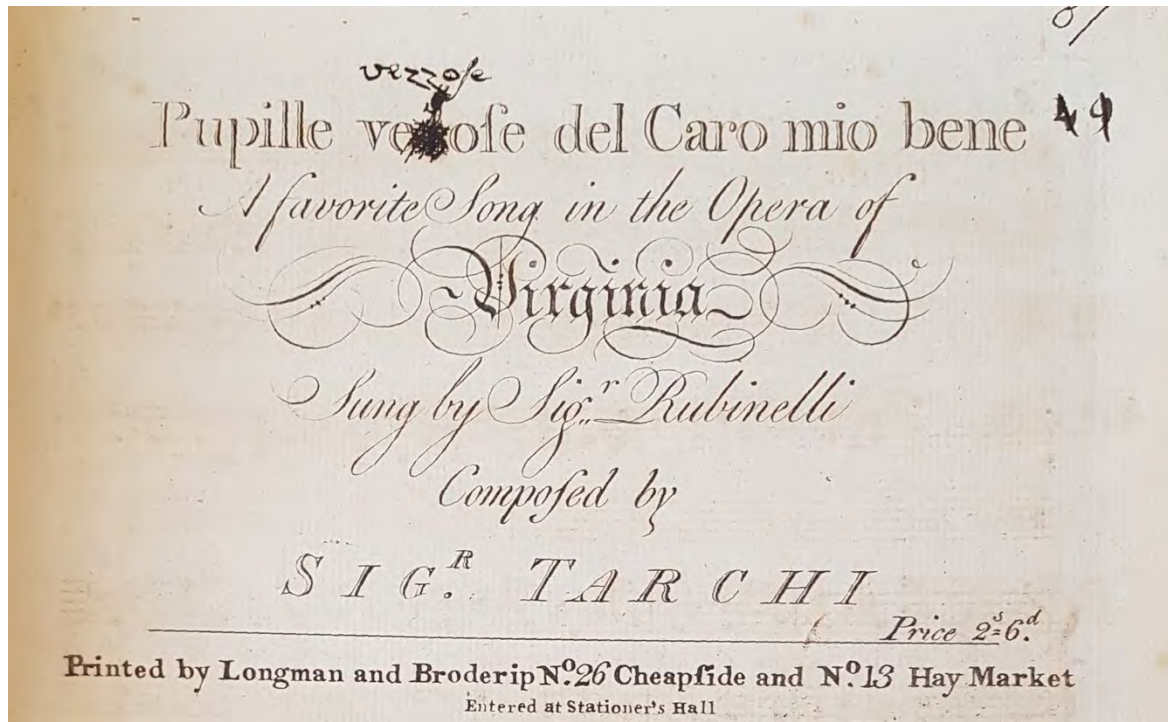 vezzoſe
Pupille veoſe del Caro mio bene
A favorite Song in the Opera of
Virginia
Sung by Sigr. Rubinelli
Compoſed by
SIGR. TARCHI
Price 2s=6d.
Printed by Longman and Broderip No. 26 Cheapſide and No. 13 Hay Market
Entered at Stationer's Hall